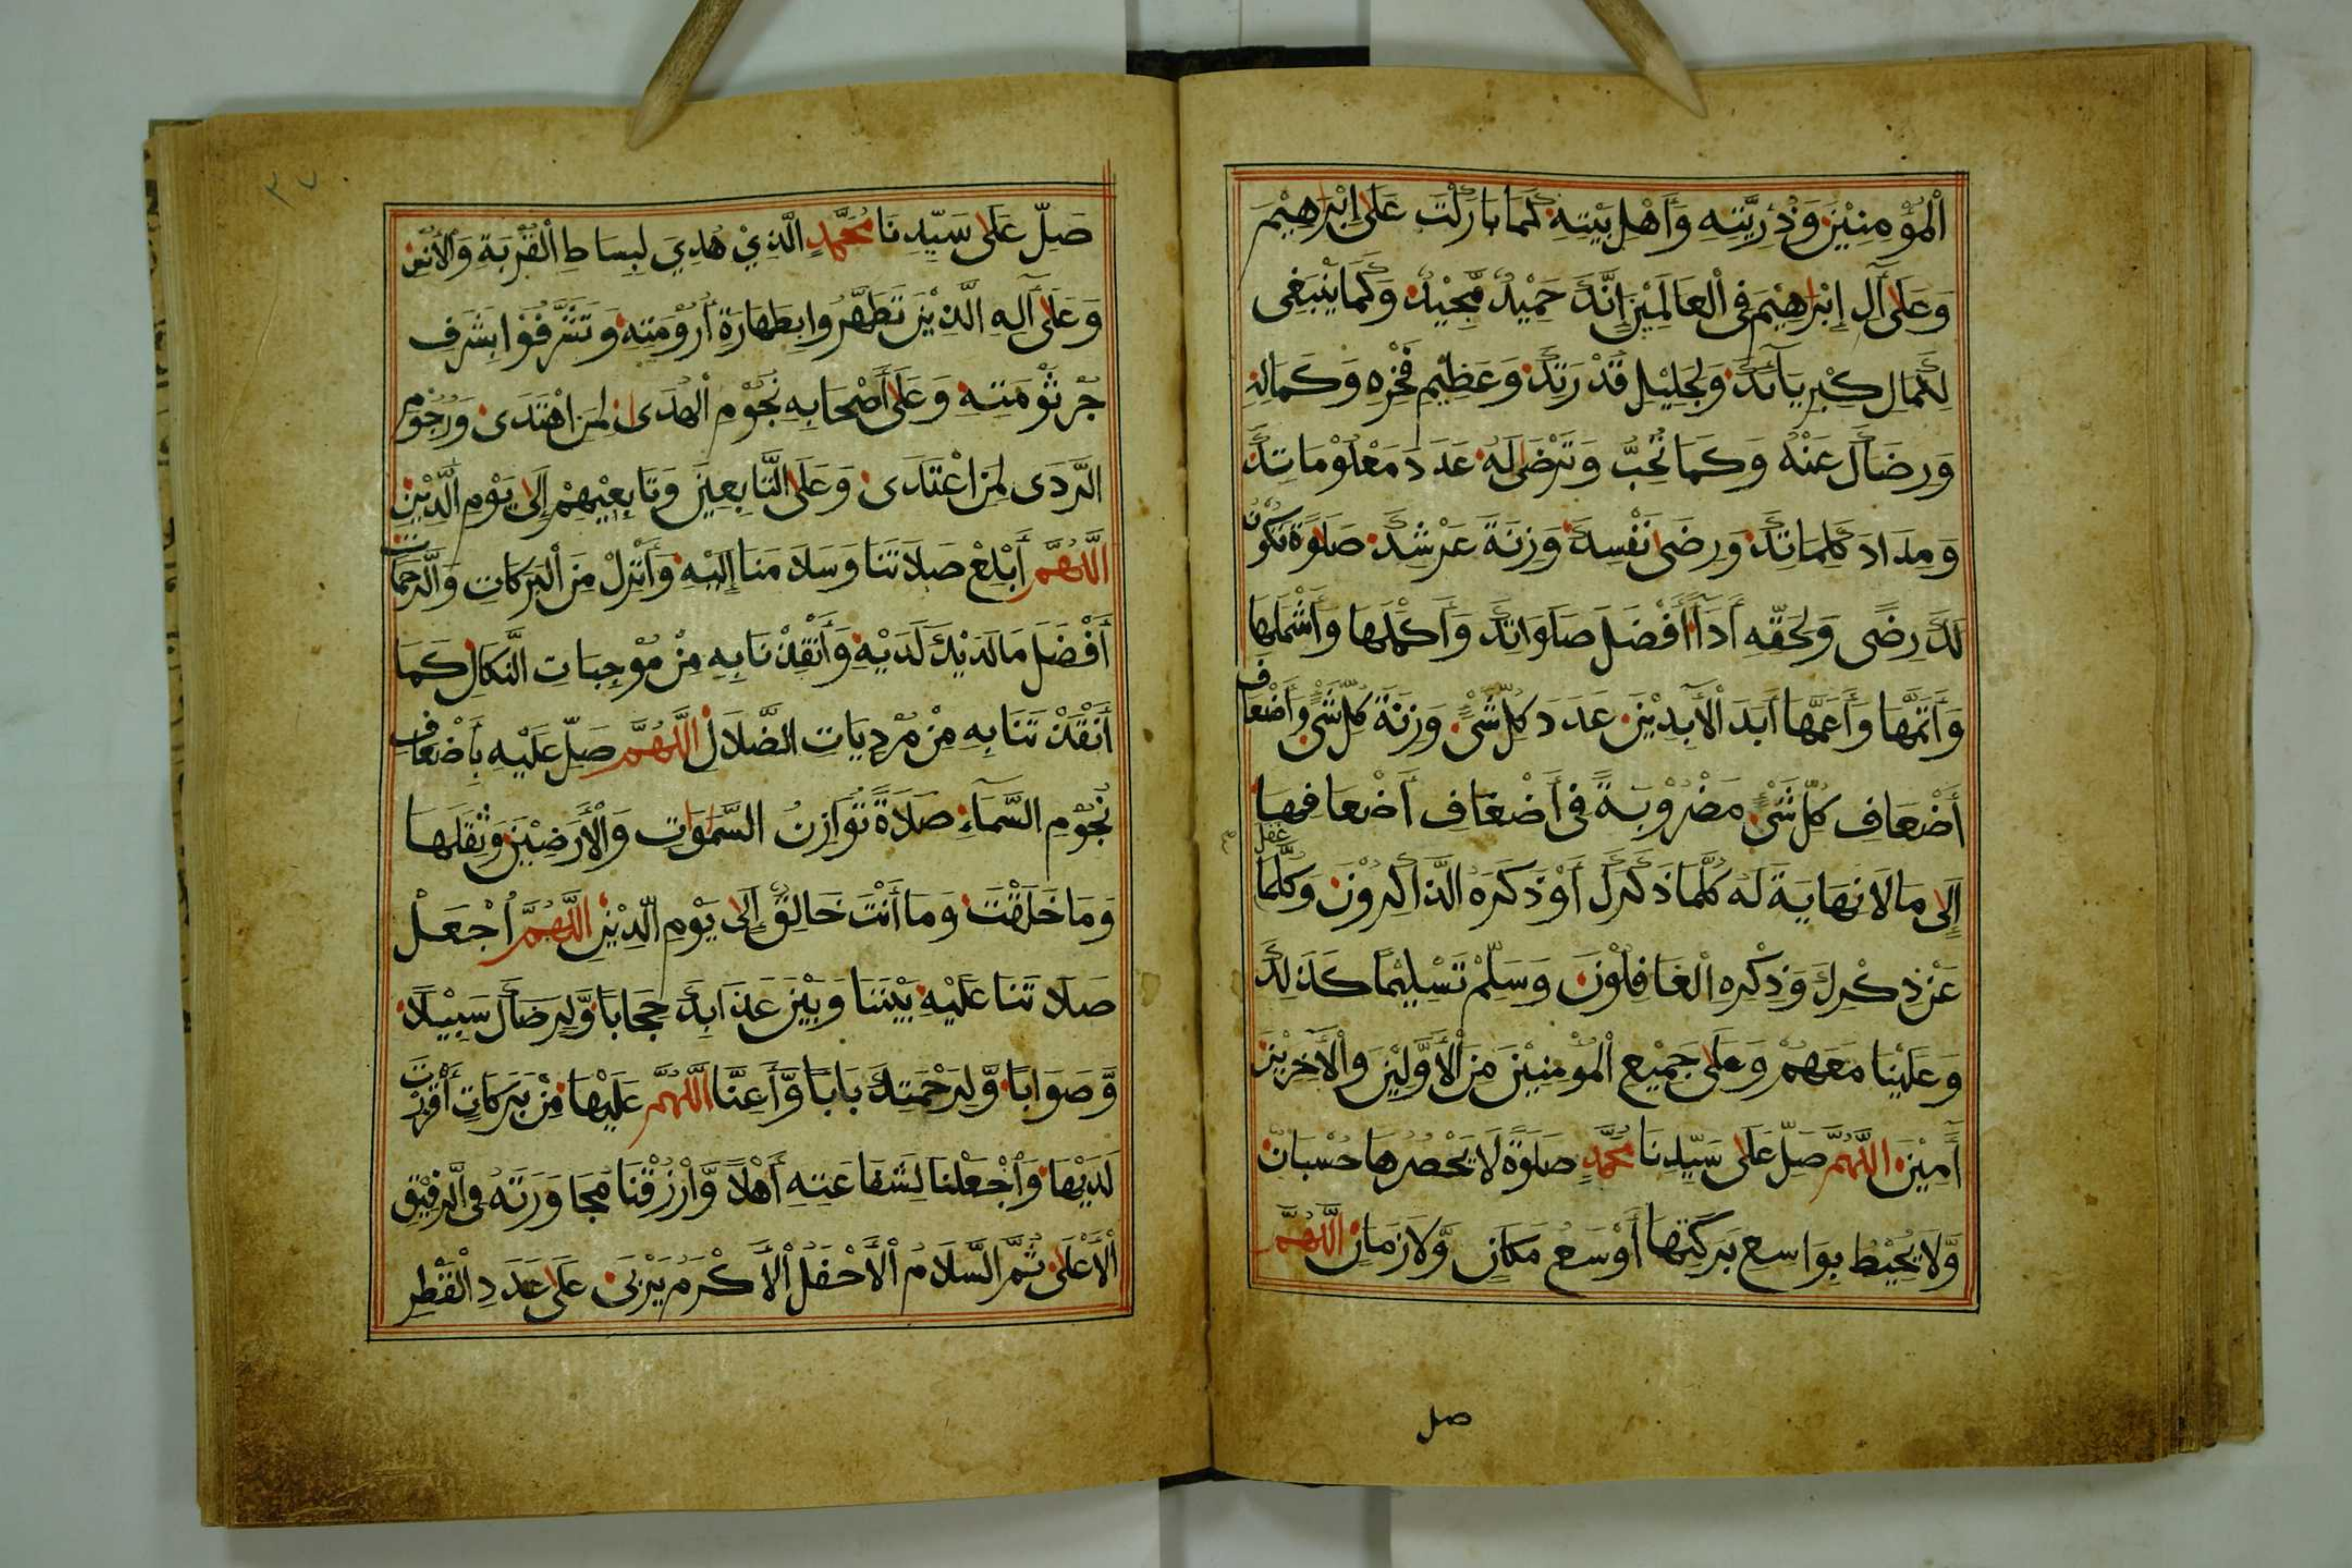 اَلْمُؤْمِنِيْنَ وَذُرِّيَّتِهِ وَأَهْلِ بَيْتِهِ كَمَا بَارَكْتَ عَلَى إِبْرَاهِيْمَ
وَعَلَى آلِ إِبْرَاهِيْمَ فِى الْعَالَمِيْنَ إِنَّكَ حَمِيْدٌ مَّجِيْدٌ وَكَمَا يَنْبَغِى
لِكَمَالِ كِبْرِيَآئِكَ وَلِجَلِيْلِ قُدْرَتِكَ وَعَظِيْمِ فَخْرِهِ وَكَمَالِهِ
وَرِضَاكَ عَنْهُ وَكَمَا تُحِبُّ وَتَرْضَى لَهُ عَدَدَ مَعْلُوْمَاتِكَ
وَمِدَادَ كَلِمَاتِكَ وَرِضَى نَفْسِكَ وَزِنَةَ عَرْشِكَ صَلَوةً تَكُوْنُ
لَكَ رِضًى وَلِحَقِّهِ أَدَآءً أَفْضَلَ صَلَوَاتِكَ وَأَكْمَلَهَا وَأَشْمَلَهَا
وَأَتَمَّهَا وَأَعَمَّهَا أَبَدَ الْآبِدِيْنَ عَدَدَ كُلِّ شَىْءٍ وَزِنَةَ كُلِّ شَىْءٍ وَأَضْعَافَ
أَضْعَافِ كُلِّ شَىْءٍ مَضْرُوْبَةً فِى أَضْعَافِ أَضْعَافِهَا
إِلَى مَا لَا نِهَايَةَ لَهُ كُلَّمَا ذَكَرَكَ أَوْ ذَكَرَهُ الذَّاكِرُوْنَ وَكُلَّمَا غَفَلَ
عَنْ ذِكْرِكَ وَذِكْرِهِ الْغَافِلُوْنَ وَسَلِّمْ تَسْلِيْمًا كَذَلِكَ
وَعَلَيْنَا مَعَهُمْ وَعَلَى جَمِيْعِ الْمُؤْمِنِيْنَ مِنَ الْأَوَّلِيْنَ وَالْآخِرِيْنَ
آمِيْنَ اللَّهُمَّ صَلِّ عَلَى سَيِّدِنَا مُحَمَّدٍ صَلَوةً لَا يَحْصُرُهَا حُسْبَانٌ
وَّلَا يُحِيْطُ بِوَاسِعِ بَرَكَتِهَا أَوْسَعُ مَكَانٍ وَّلَا زَمَانٍ اللَّهُمَّ
صل
٣٧
صَلِّ عَلَى سَيِّدِنَا مُحَمَّدٍ الَّذِيْ هُدِيَ لِبِسَاطِ الْقُرْبَةِ وَالْأُنْسِ
وَعَلَى آلِهِ الَّذِيْنَ تَطَهَّرُوا بِطَهَارَةِ أَرُوْمَتِهِ وَتَشَرَّفُوْا بِشَرَفِ
جُرْثُوْمَتِهِ وَعَلَى أَصْحَابِهِ نُجُوْمِ الْهُدَى لِمَنِ اهْتَدَى وَرُجُوْمِ
الرَّدَى لِمَنِ اعْتَدَى وَعَلَى التَّابِعِيْنَ وَتَابِعِيْهِمْ إِلَى يَوْمِ الدِّيْنِ
اللَّهُمَّ أَبْلِغْ صَلَاتَنَا وَسَلَامَنَا إِلَيْهِ وَأَنْزِلْ مِنَ الْبَرَكَاتِ وَالرَّحَمَاتِ
أَفْضَلَ مَا لَدَيْكَ لَدَيْهِ وَأَنْقِذْنَا بِهِ مِنْ مُوْجِبَاتِ النَّكَالِ كَمَا
أَنْقَذْتَنَا بِهِ مِنْ مُرْدِيَاتِ الضَّلَالِ اللَّهُمَّ صَلِّ عَلَيْهِ بِأَضْعَافِ
نُجُوْمِ السَّمَآءِ صَلَاةً تُوَازِنُ السَّمَوَاتِ وَالْأَرَضِيْنَ وَثِقَلَهَا
وَمَا خَلَقْتَ وَمَا أَنْتَ خَالِقٌ إِلَى يَوْمِ الدِّيْنِ اللَّهُمَّ اجْعَلْ
صَلَاتَنَا عَلَيْهِ بَيْنَنَا وَبَيْنَ عَذَابِكَ حِجَابًا وَّلِرِضَاكَ سَبِيْلًا
وَّصَوَابًا وَّلِرَحْمَتِكَ بَابًا وَّأَعِنَّا اللَّهُمَّ عَلَيْهَا مِنْ بَرَكَاتٍ أَفْرَزْتَ
لَدَيْهَا وَاجْعَلْنَا لِشَفَاعَتِهِ أَهْلًا وَّارْزُقْنَا مُجَاوَرَتَهُ فِى الرَّفِيْقِ
الْأَعْلَى ثُمَّ السَّلَامُ الْأَحْفَلُ الْأَكْرَمُ يَرْبَى عَلَى عَدَدِ الْقَطْرِ